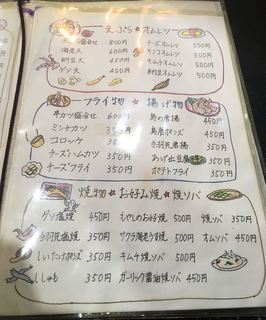 天ぷら ☆ オムレツ
800円 チーズオムレツ 500円
海老天 400円 キノコオムレツ 500円
納豆天 450円 キムチオムレツ 500円
ゲソ天 450円 納豆オムレツ 500円
フライ物 ☆ 揚げ物
串カツ盛合せ 600円 450円
ミンチカツ 350円 350円
コロッケ 350円 350円
チーズハムカツ 350円 あげ出豆腐 350円
チーズフライ 350円 ポテトフライ 350円
焼物 ☆ お好み焼 ☆ 焼ソバ
ゲソ塩焼 450円 もやしのお好み焼 500円 焼ソバ 350円
350円 サクラ海老うす焼 500円 オムソバ 450円
350円 キムチ焼ソバ 500円
ししゃも 350円 ガーリック醤油焼ソバ 450円